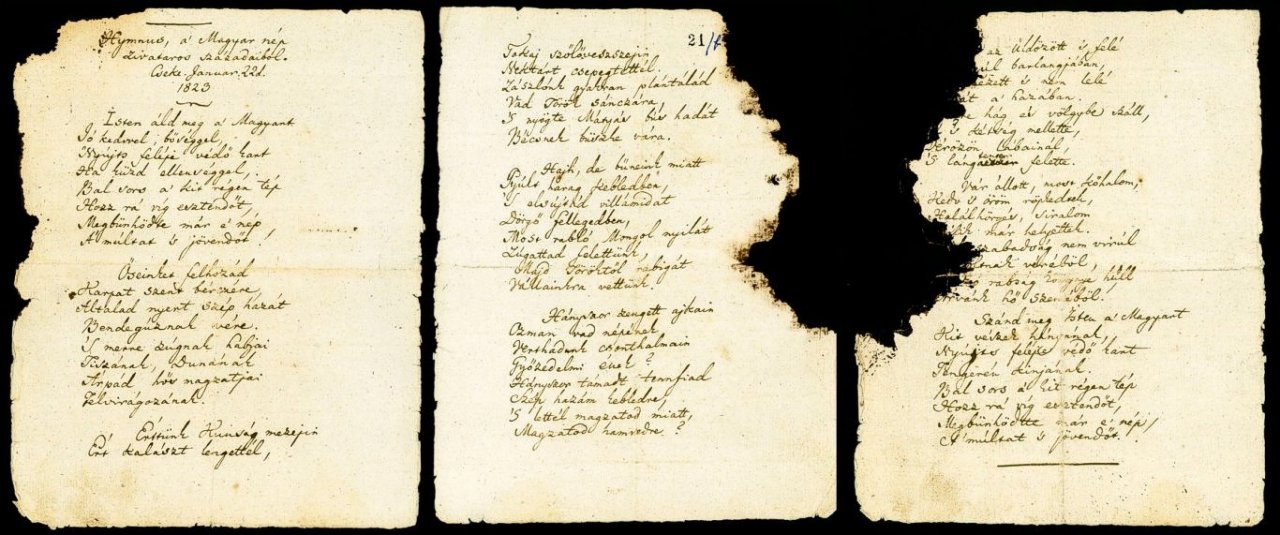 Hymnus, a' Magyar nép
zivataros századaiból.
Cseke. Januar. 22d.
1823
Isten áld meg a Magyart
Jó kedvvel, bőséggel,
Nyújts feléje védő kart
Ha küzd ellenséggel,
Bal sors a' kit régen tép
Hozz rá víg esztendőt,
Megbünhődte már e' nép
A' múltat 's jövendőt!
Őseinket felhozád
Karpat szent bérczére,
Általad nyert szép hazát
Bendegúznak vére.
'S merre zúgnak habjai
Tiszának, Dunának
Árpád hős magzatjai
Felvirágozának.
Értünk Kunság mezejin
Ért kalászt lengettél,
21/
Tokaj szőlővesszejin
Nektárt csepegtettél.
Zászlónk gyakran plántálád
Vad Török sánczára,
'S nyögte Mátyás bús hadát
Bécsnek büszke vára.
Hajh, de bűneink miatt
Gyúlt harag kebledben,
'S elsújtád villámidat
Dörgő fellegedben,
Most rabló Mongol nyilát
Zúgattad felettünk,
Majd Töröktől rabigát
Vállainkra vettünk.
Hányszor zengett ajkain
Ozman vad népének
Vert hadunk csonthalmain
Győzedelmi ének?
Hányszor támadt tennfiad
Szép hazám kebledre,
'S lettél magzatod miatt,
Magzatod hamvvedre?
az üldözött 's felé
barlangjában,
's nem lelé
a' hazában.
hág és völgybe száll,
's kétség mellette,
Vérözön lábainál,
'S lángtenger felette.
Vár állott, most kőhalom,
Kedv 's öröm röpkedtek,
Halálhörgés, siralom
már helyettek.
szabadság nem virúl
véréből,
rabság könnye hull
hő szeméből.
Szánd meg Isten a' Magyart
Kit vészek hányának,
Nyújts feléje védő kart
Tengerén kínjának.
Bal sors a' kit régen tép
Hozz rá víg esztendőt,
Megbünhődte már e' nép,
A' múltat 's jövendőt.